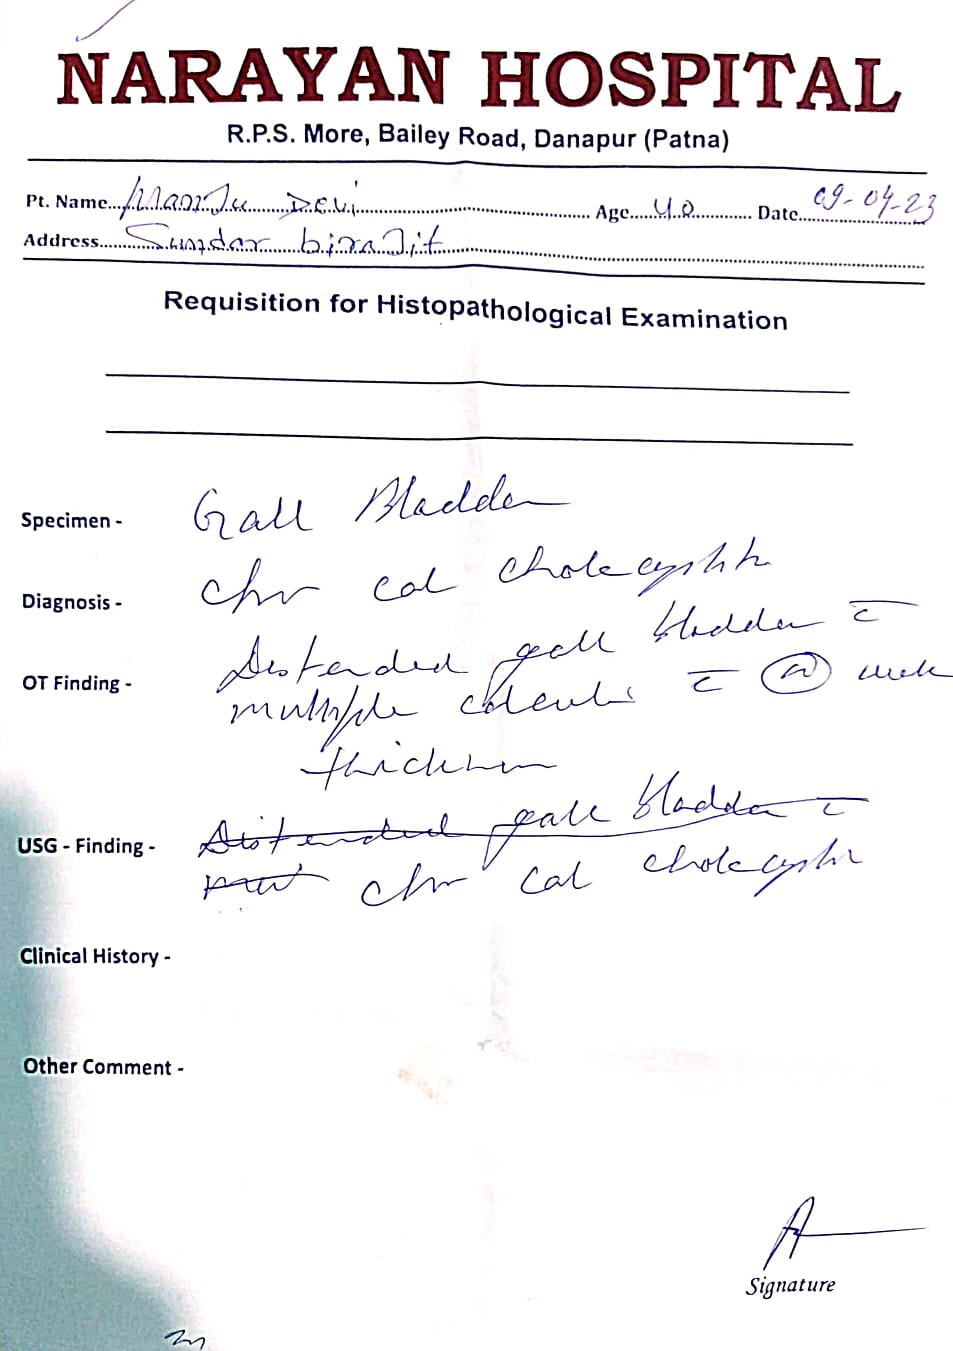 NARAYAN HOSPITAL
R.P.S. More, Bailey Road, Danapur (Patna)
Pt. Name Manju Devi Age 40 Date 09-04-23
Address Sundar birajit
Requisition for Histopathological Examination
Specimen - Gall Bladder
Diagnosis - Chr cal cholecystitis
OT Finding - Distended gall bladder c̄
multiple calculi c̄ (N) wall
thickness
USG - Finding - Distended gall bladder c̄
chr cal cholecystitis
Clinical History -
Other Comment -
Signature